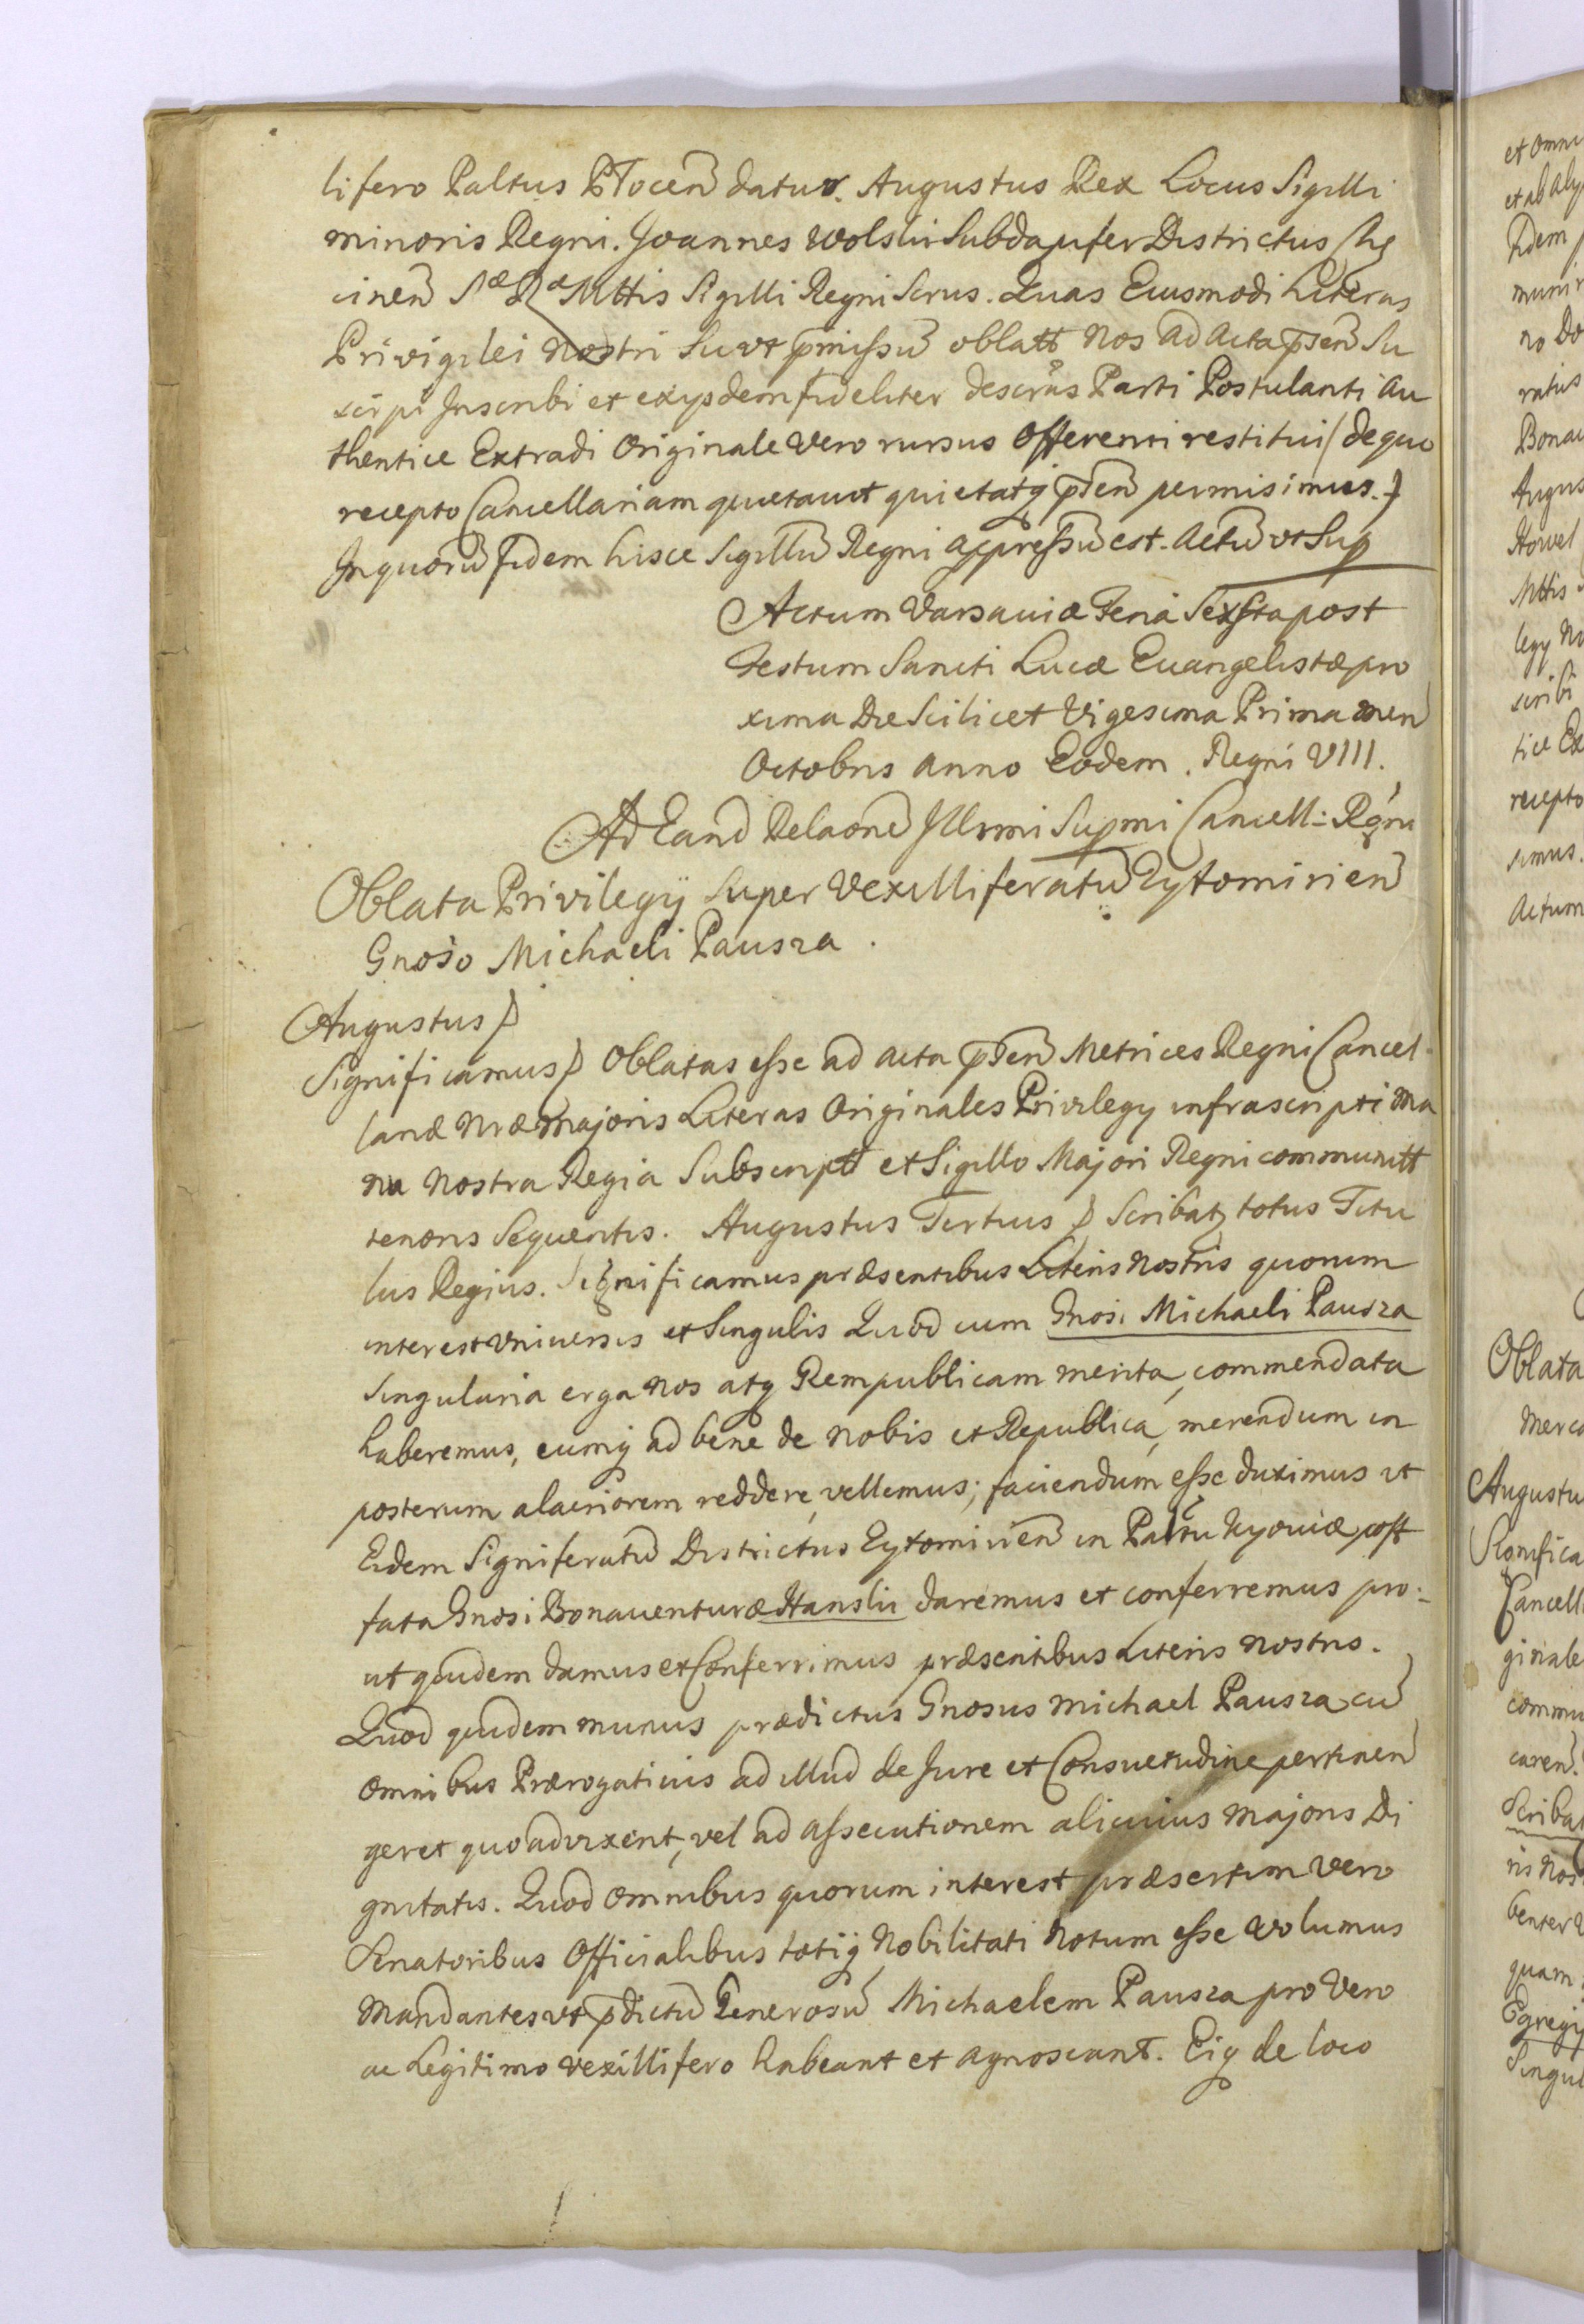 lifero Paltus Płocen datur. Augustus Rex Locus Sigilli
minoris Regni. Joannes Wolski Subdapifer Districtus
cinen Sæ Ræ Mttis Sigilli Regni Scrus. Quas Eiusmodi Literas
Privigilei nostri Su ut pmissu oblatt Nos ad acta pñsen Su
scipi Inscribi et exijsdem fideliter descras Parti Postulanti au
thentice Extradi Originale Vero rursus Offerenti restitui (de quo
recepto Cancellariam quietavit quietatq pñsen permisimus.)
Inquoru fidem hisce Sigillu Regni appressu est. Actu ut Sup
Actum Varsaviæ Feria Sexta post
Festum Sancti Lucæ Evangelistæ pro
xima Die Scilicet Vigesima Prima men
Octobris anno Eodem. Regni VIII.
Ad Eand Relaone Illrmi Supmi Cancell: Regni
Oblata Privilegij Super Vexilliferatu Zytomirien
Gnoso Michaeli Pausza.
Augustus
Significamus Oblatas esse ad acta pñsen Metrices Regni Cancel
lariæ Nræ Majoris Literas Originales Privilegy infrascripti Ma
nu Nostra Regia Subscriptt et Sigillo Majori Regni communitt
tenoris Sequentis. Augustus Tertius Scribatz totus Titu
lus Regius. Significamus præsentibus Literis Nostris quorum
interest Universis et Singulis Quod cum Gnosi Michaeli Pausza
Singularia erga Nos atq Rempublicam merita, commendata
haberemus, eumq ad bene de Nobis et Republica, merendum in
posterum alacriorem reddere, vellemus; faciendum esse duximus ut
Eidem Signiferatu Districtus Zytomirien in Paltu Kyoviæ post
fata Gnosi Bonaventuræ Hanski daremus et conferremus pro:
ut quidem damus et Conferrimus præsentibus Literis Nostris.
Quod quidem munus prædictus Gnosus Michael Pausza cu
omnibus Prærogativis ad illud de Jure et Consuetudine pertinen
geret quoad vixerit, vel ad assecutionem alicuius Majoris Di
gnitatis. Quod omnibus quorum interest præsertim Vero
Senatoribus Officialibus totiq Nobilitati Notum esse Volumus
Mandantes ut pdictu Generosu Michaelem Pausza pro Vero
ac Legitimo Vexillifero habeant et agnoscant. Eiq de loco
et omni
fidem
munir
no Do
ratus
Bonav
Augus
Mttis
legy
scribi
tice Ex
recepto
simus.
Actum
Oblata
Merca
Augustu
Significa
Cancell
ginale
commu
caren.
Scribat
ris Nos
benter
quam
Egregij
Singul